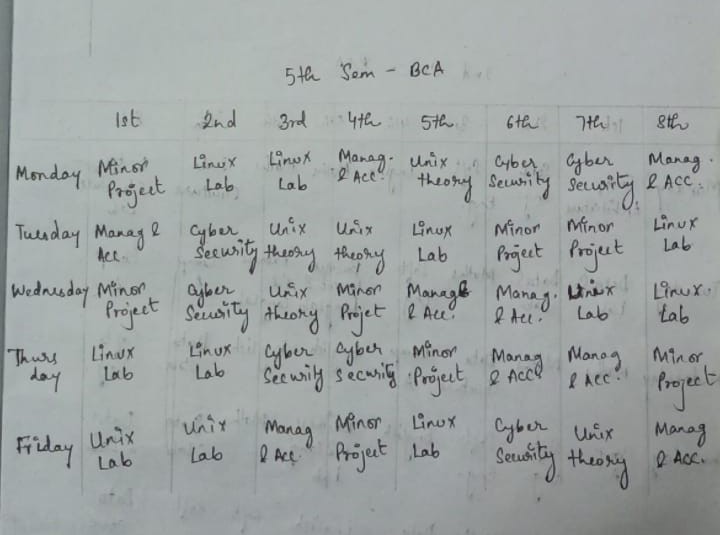 5th Sem - BCA
1st 2nd 3rd 4th 5th 6th 7th 8th
Monday Minor Project Linux Lab Linux Lab Manag. & Acc. Unix theory Cyber Security Cyber Security Manag. & Acc.
Tuesday Manag & Acc. Cyber Security Unix theory Unix theory Linux Lab Minor Project Minor Project Linux Lab
Wednesday Minor Project Cyber Security Unix theory Minor Projet Manag & Acc. Manag. & Acc. Lab Linux. Lab
Thurs day Linux Lab Linux Lab Cyber Security Cyber Security Minor Project Manag & Acc Manag & Acc. Minor Project
Friday Unix Lab Unix Lab Manag & Acc. Minor Project Linux Lab Cyber Security Unix theory Manag & Acc.